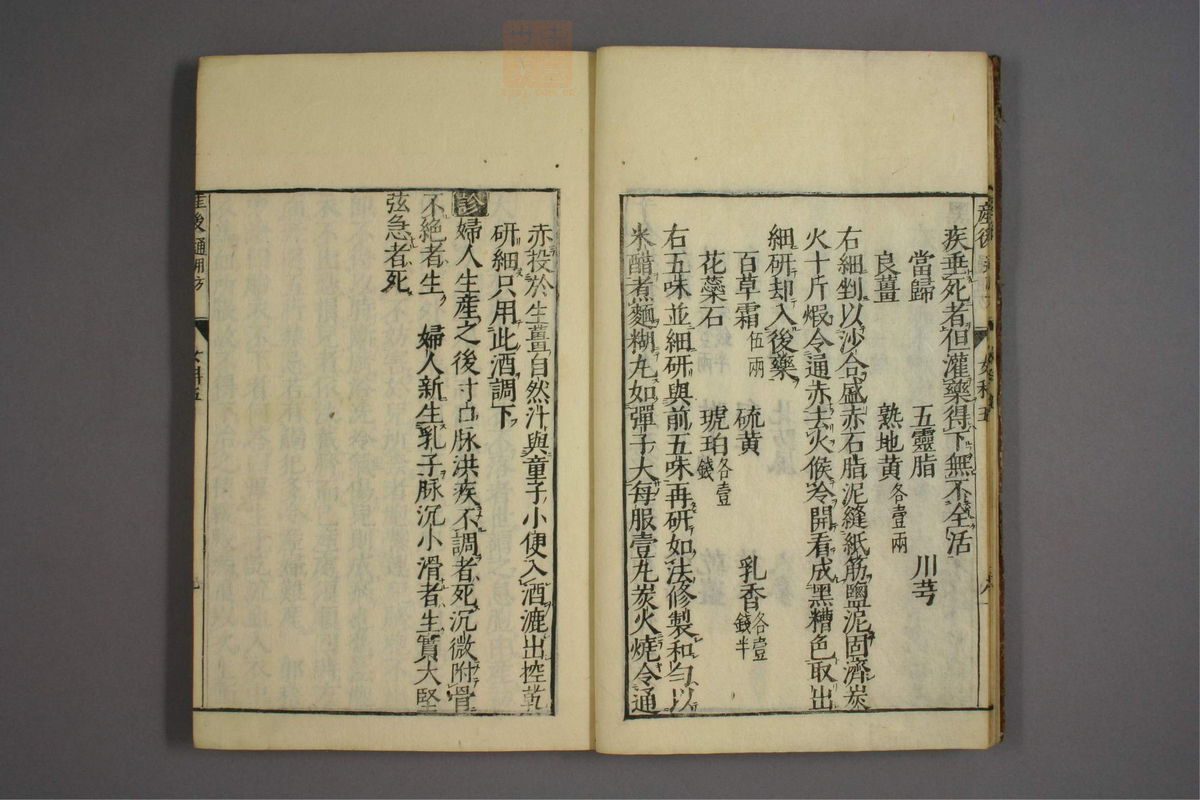 疾垂死者但灌藥得下無不全活
當歸 五靈脂 川芎
良薑 熟地黃各壹兩
右細剉以沙合盛赤石脂泥縫紙筋鹽泥固濟炭
火十斤煆令通赤去火候冷開看成黑糟色取出
細研却入後藥
百草霜伍兩 硫黃 乳香各壹錢半
花蘂石 琥珀各壹錢
右五味並細研與前五味再研如法修製和勻以
米醋煮麵糊丸如彈子大每服壹丸炭火燒令通
赤投於生薑自然汁與童子小便入酒漉出控乾
研細只用此酒調下
診婦人生產之後寸口脉洪疾不調者死沉微附骨
不絕者生 婦人新生乳子脉沉小滑者生實大堅
弦急者死